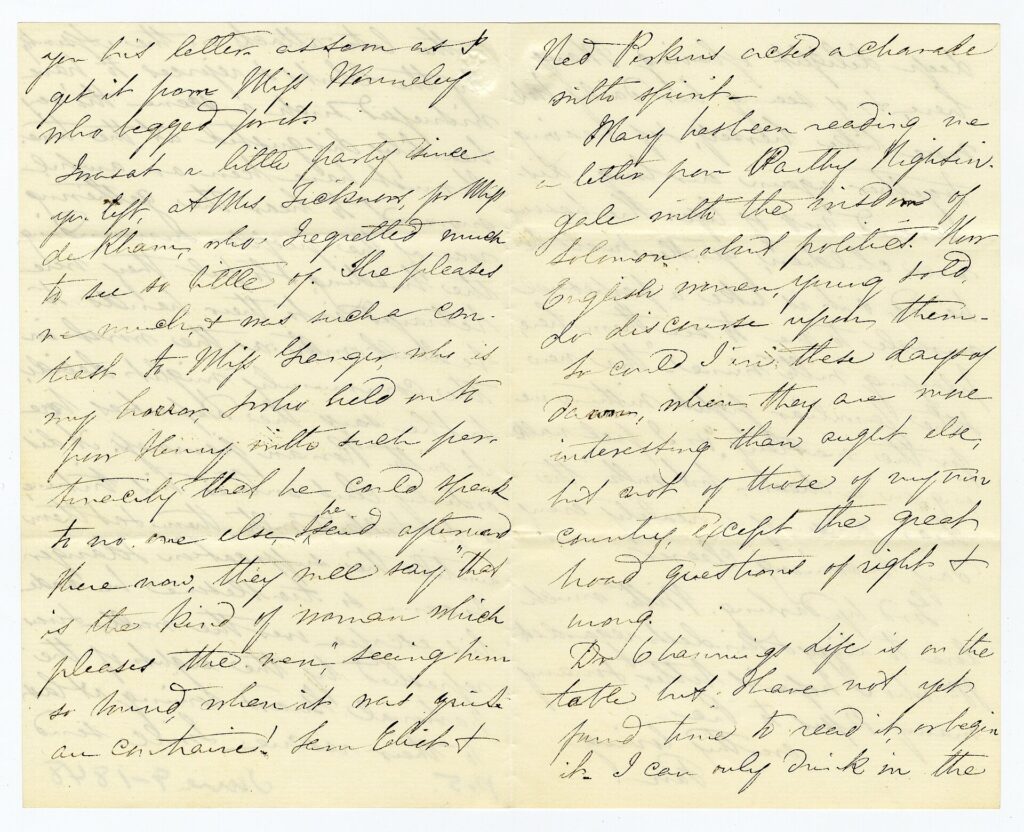 you his letter as soon as I
get it from Miss Wormeley
who begged for it.
I was at a little party since
you left, at Mrs Ticknors, for Miss
de Rham, who I regretted much
to see so little of. She pleases
me much, & was such a con-
trast to Miss Granger, who is
my horror, & who held on to
poor Henry with such per-
tinacity that he could speak
to no one else, & he said afterward
there now, they will say, "that
is the kind of woman which
pleases the men", seeing him
so bound, when it was quite
au contraire! Sam Eliot &
Ned Perkins acted a charade
with spirit.
Mary has been reading me
a letter from Parthy Nightin-
gale with the wisdom of
Solomon about politics. How
English women, young & old,
do discourse upon them-
So could I in these days of
when they are more
interesting than aught else,
but not of those of my own
country, except the great
broad questions of right &
wrong.
Dr Channings Life is on the
table but I have not yet
found time to read it, or begin
it. I can only drink in the
June 9 - 1848